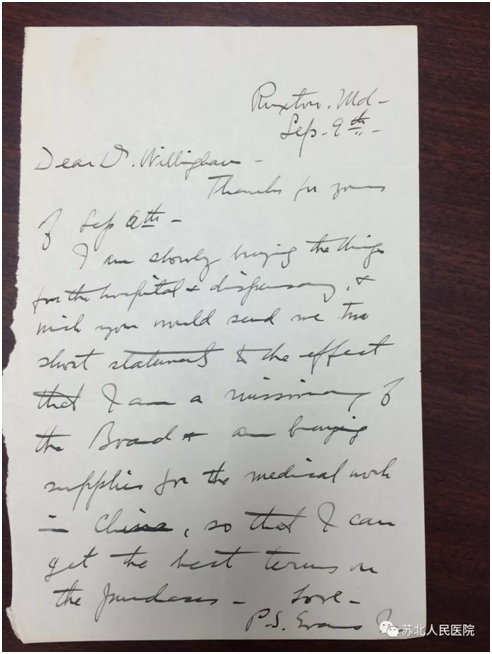 Ruxton. Md -
Sep - 9th -
Dear Dr. Willingham -
Thanks for yours
of Sep 6th -
I am slowly buying the things
for the hospital & dispensary, &
wish you would send me two
short statements to the effect
that I am a missionary of
the Board & am buying
supplies for the medical work
in China, so that I can
get the best terms on
the purchases - Love -
P.S. Evans Jr
苏北人民医院